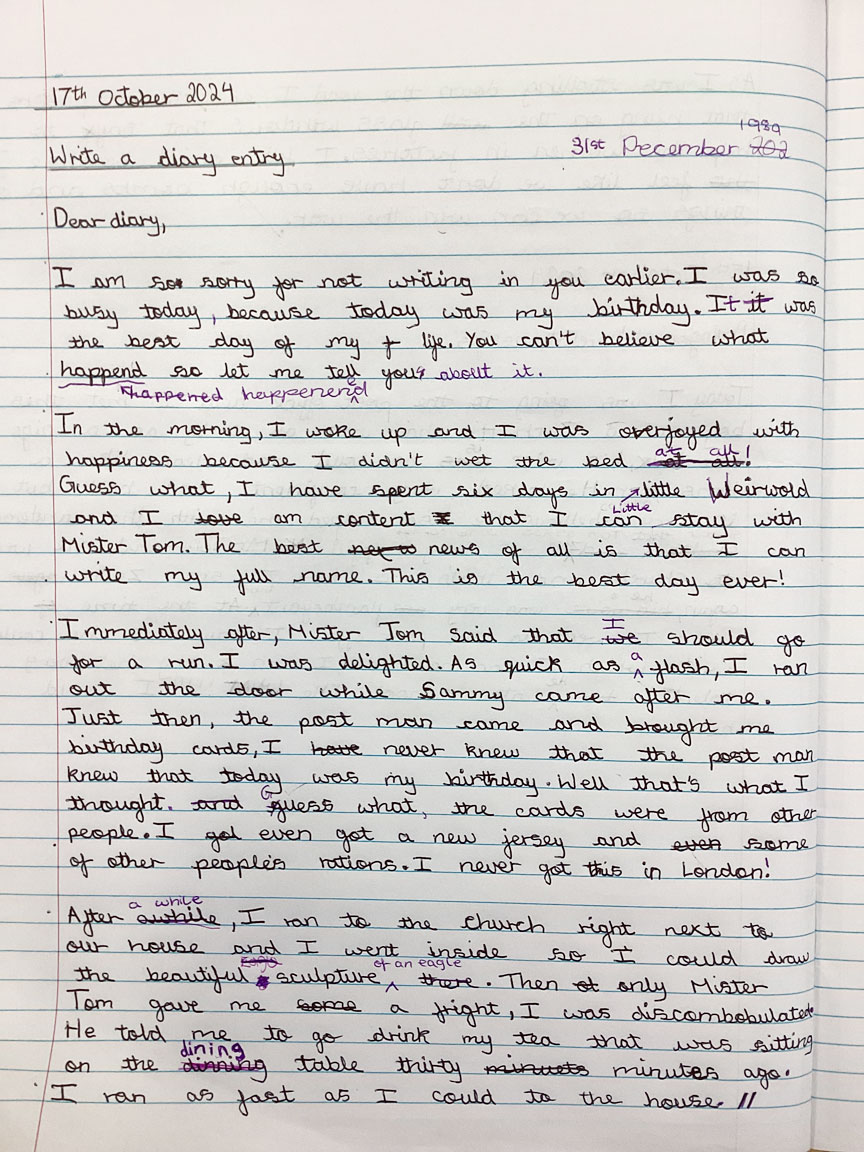 17th October 2024
1989
Write a diary entry 31st December 202
Dear diary,
I am so sorry for not writing in you earlier. I was so
busy today, because today was my birthday. It it was
the best day of my f life. You can't believe what
happend so let me tell you about it.
happened happenened
In the morning, I woke up and I was overjoyed with
at all
happiness because I didn't wet the bed at all!
Guess what, I have spent six days in little Weirwold
Little
and I love am content that I can stay with
Mister Tom. The best news of all is that I can
write my full name. This is the best day ever!
I
Immediately after, Mister Tom said that we should go
a
for a run. I was delighted. As quick as flash, I ran
out the door while Sammy came after me.
Just then, the post man came and brought me
birthday cards, I have never knew that the post man
knew that today was my birthday. Well that's what I
G
thought. and guess what, the cards were from other
people. I got even got a new jersey and even some
of other people's rations. I never got this in London!
a while
After awhile, I ran to the church right next to
our house and I went inside so I could draw
eagle of an eagle
the beautiful sculpture there. Then only Mister
Tom gave me some a fright, I was discombobulated.
He told me to go drink my tea that was sitting
dining
on the dinning table thirty minuets minutes ago.
I ran as fast as I could to the house. //